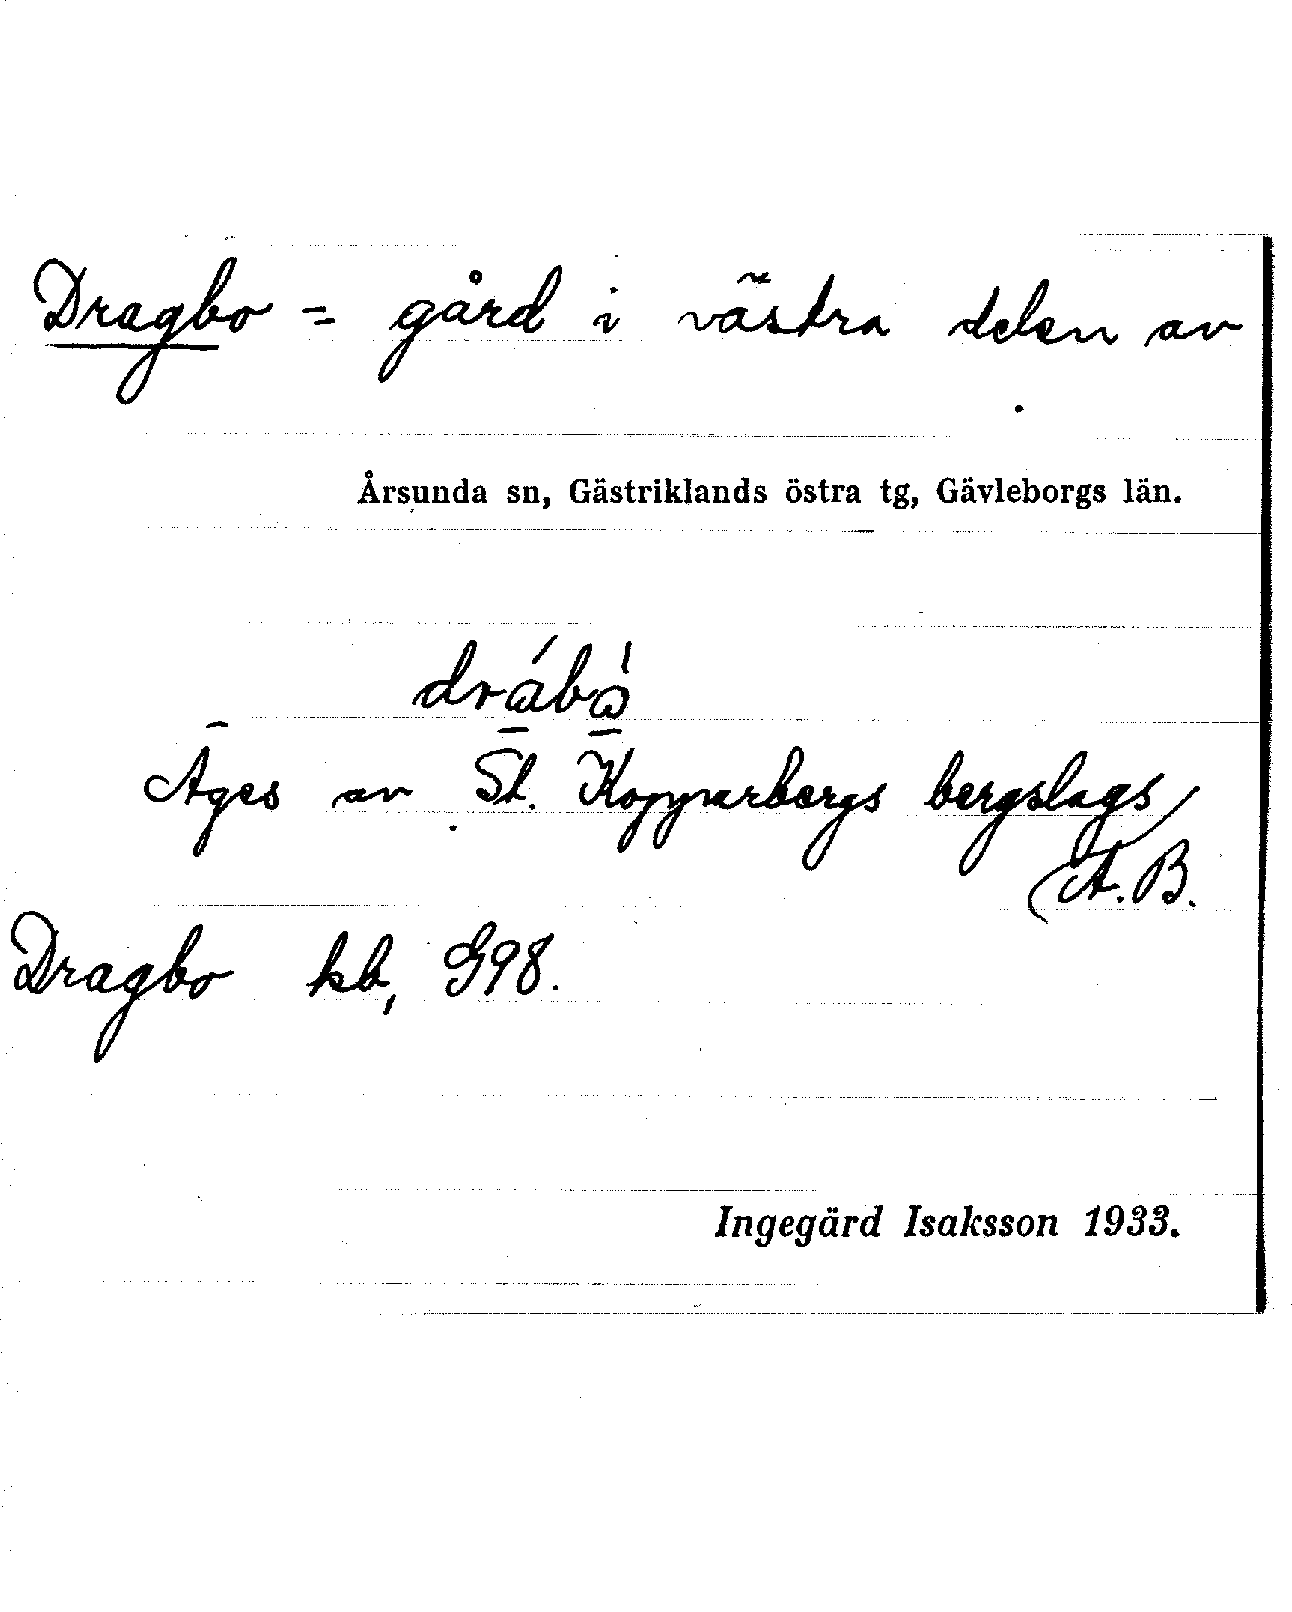 Dragbo = gård i västra delen av
Årsunda sn, Gästriklands östra tg, Gävleborgs län.
Äges av St. Kopparbergs bergslags
A.B.
Dragbo kb, G98.
Ingegärd Isaksson 1933.